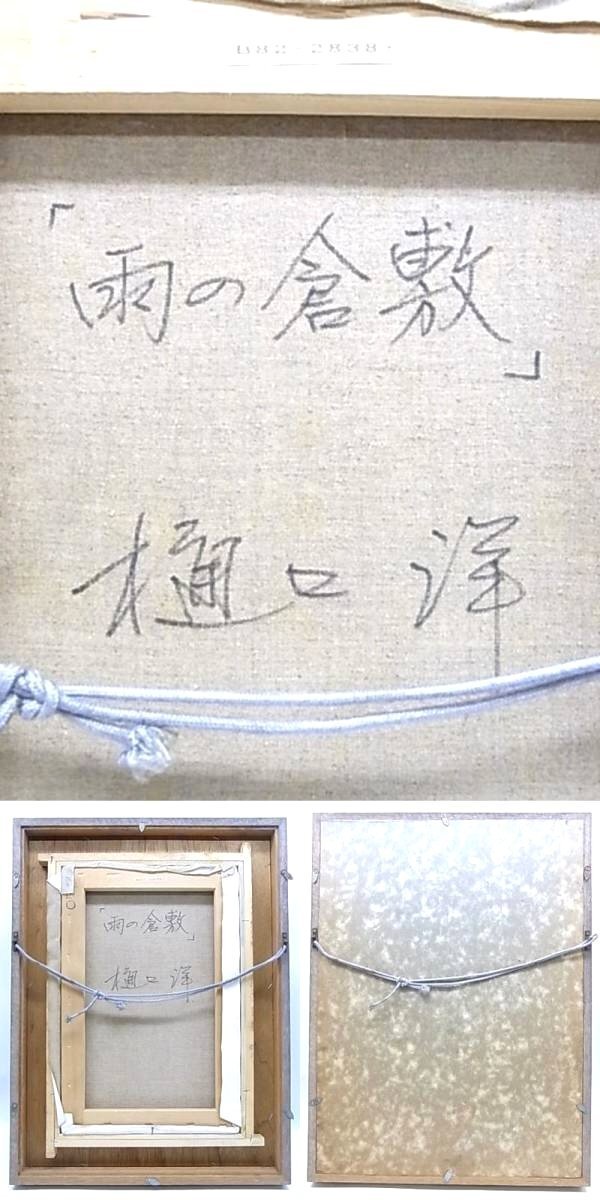 「雨の倉敷」
樋口 洋
「雨の倉敷」
樋口 洋